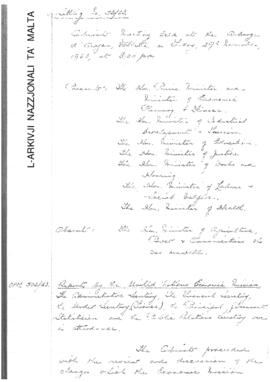 L-ARKIVJI NAZZJONALI TA' MALTA
Cabinet Meeting held at the Auberge
d'Aragon, Valletta on Friday, 29th November,
1963, at 3.00 p.m.
Present: The Hon. Prime Minister and
Minister of Economic
Planning & Finance.
The Hon. Minister of Industrial
Development & Tourism.
The Hon. Minister of Education.
The Hon. Minister of Justice
The Hon. Minister of Works and
Housing.
The Hon. Minister of Labour &
Social Welfare.
The Hon. Minister of Health.
Absent: The Hon. Minister of Agriculture,
Power & Communications
was
Reports by the United Nations Economic Mission.
The Administrative Secretary, the Financial Secretary,
the
Statistician and the Public Relations Secretary were
in attendance.
The Cabinet proceeded
with the review and discussion of the
changes which the Economic Mission